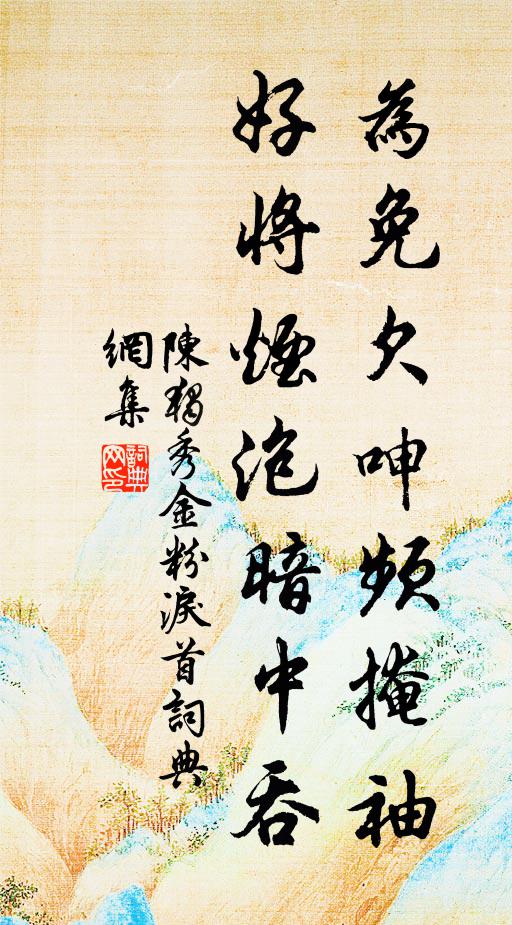 為免欠呻頻掩袖
好將煙泡暗中吞
陳獨秀金粉淚首詞典
網集
詞典
网印